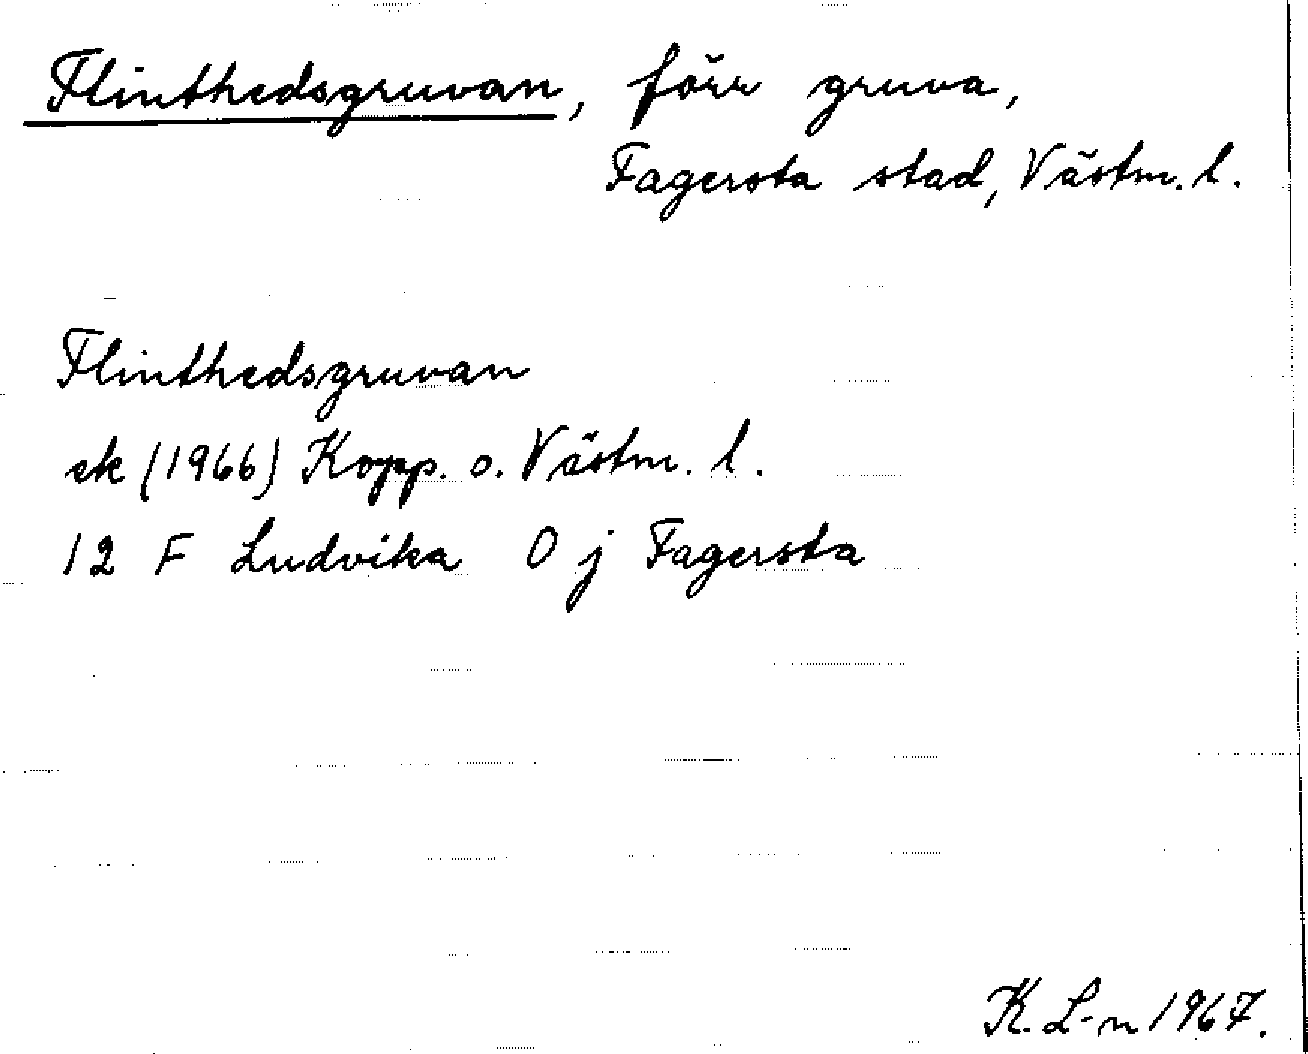 Flinthedsgruvan, förr gruva,
Fagersta stad, Västm. l.
Flinthedsgruvan
ek (1966) Kopp. o. Västm. l.
12 F Ludvika O j Fagersta
K. L-n 1967.